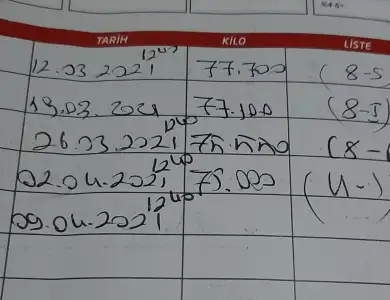 TARİH KİLO LİSTE
12.03.2021 12⁴⁰ 77.700 (8-5
19.03.2021 77.100 (8-5)
26.03.2021 12⁴⁰ (8-
02.04.2021 12⁴⁰ 75.000
09.04.2021 12⁴⁰